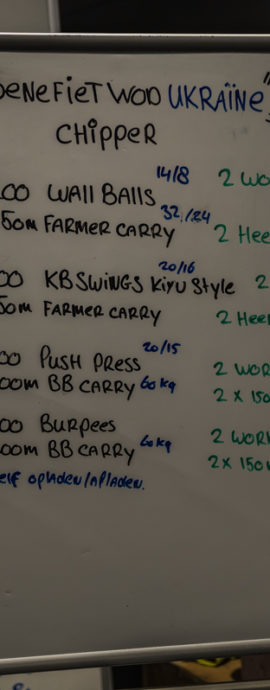 BENEFIET WOD UKRAÏNE "
CHIPPER
00 WALL BALLS 14/8 2 WO
50m FARMER CARRY 32/24 2 Hee
00 KB SWINGS Kiyu Style 20/16 2
50m FARMER CARRY 2 Heer
00 PUSH PRESS 20/15 2 WOR
00m BB CARRY 60 kg 2 x 150
00 Burpees 2 WORK
00m BB CARRY 60 kg 2x 150
elf opladen/afladen.